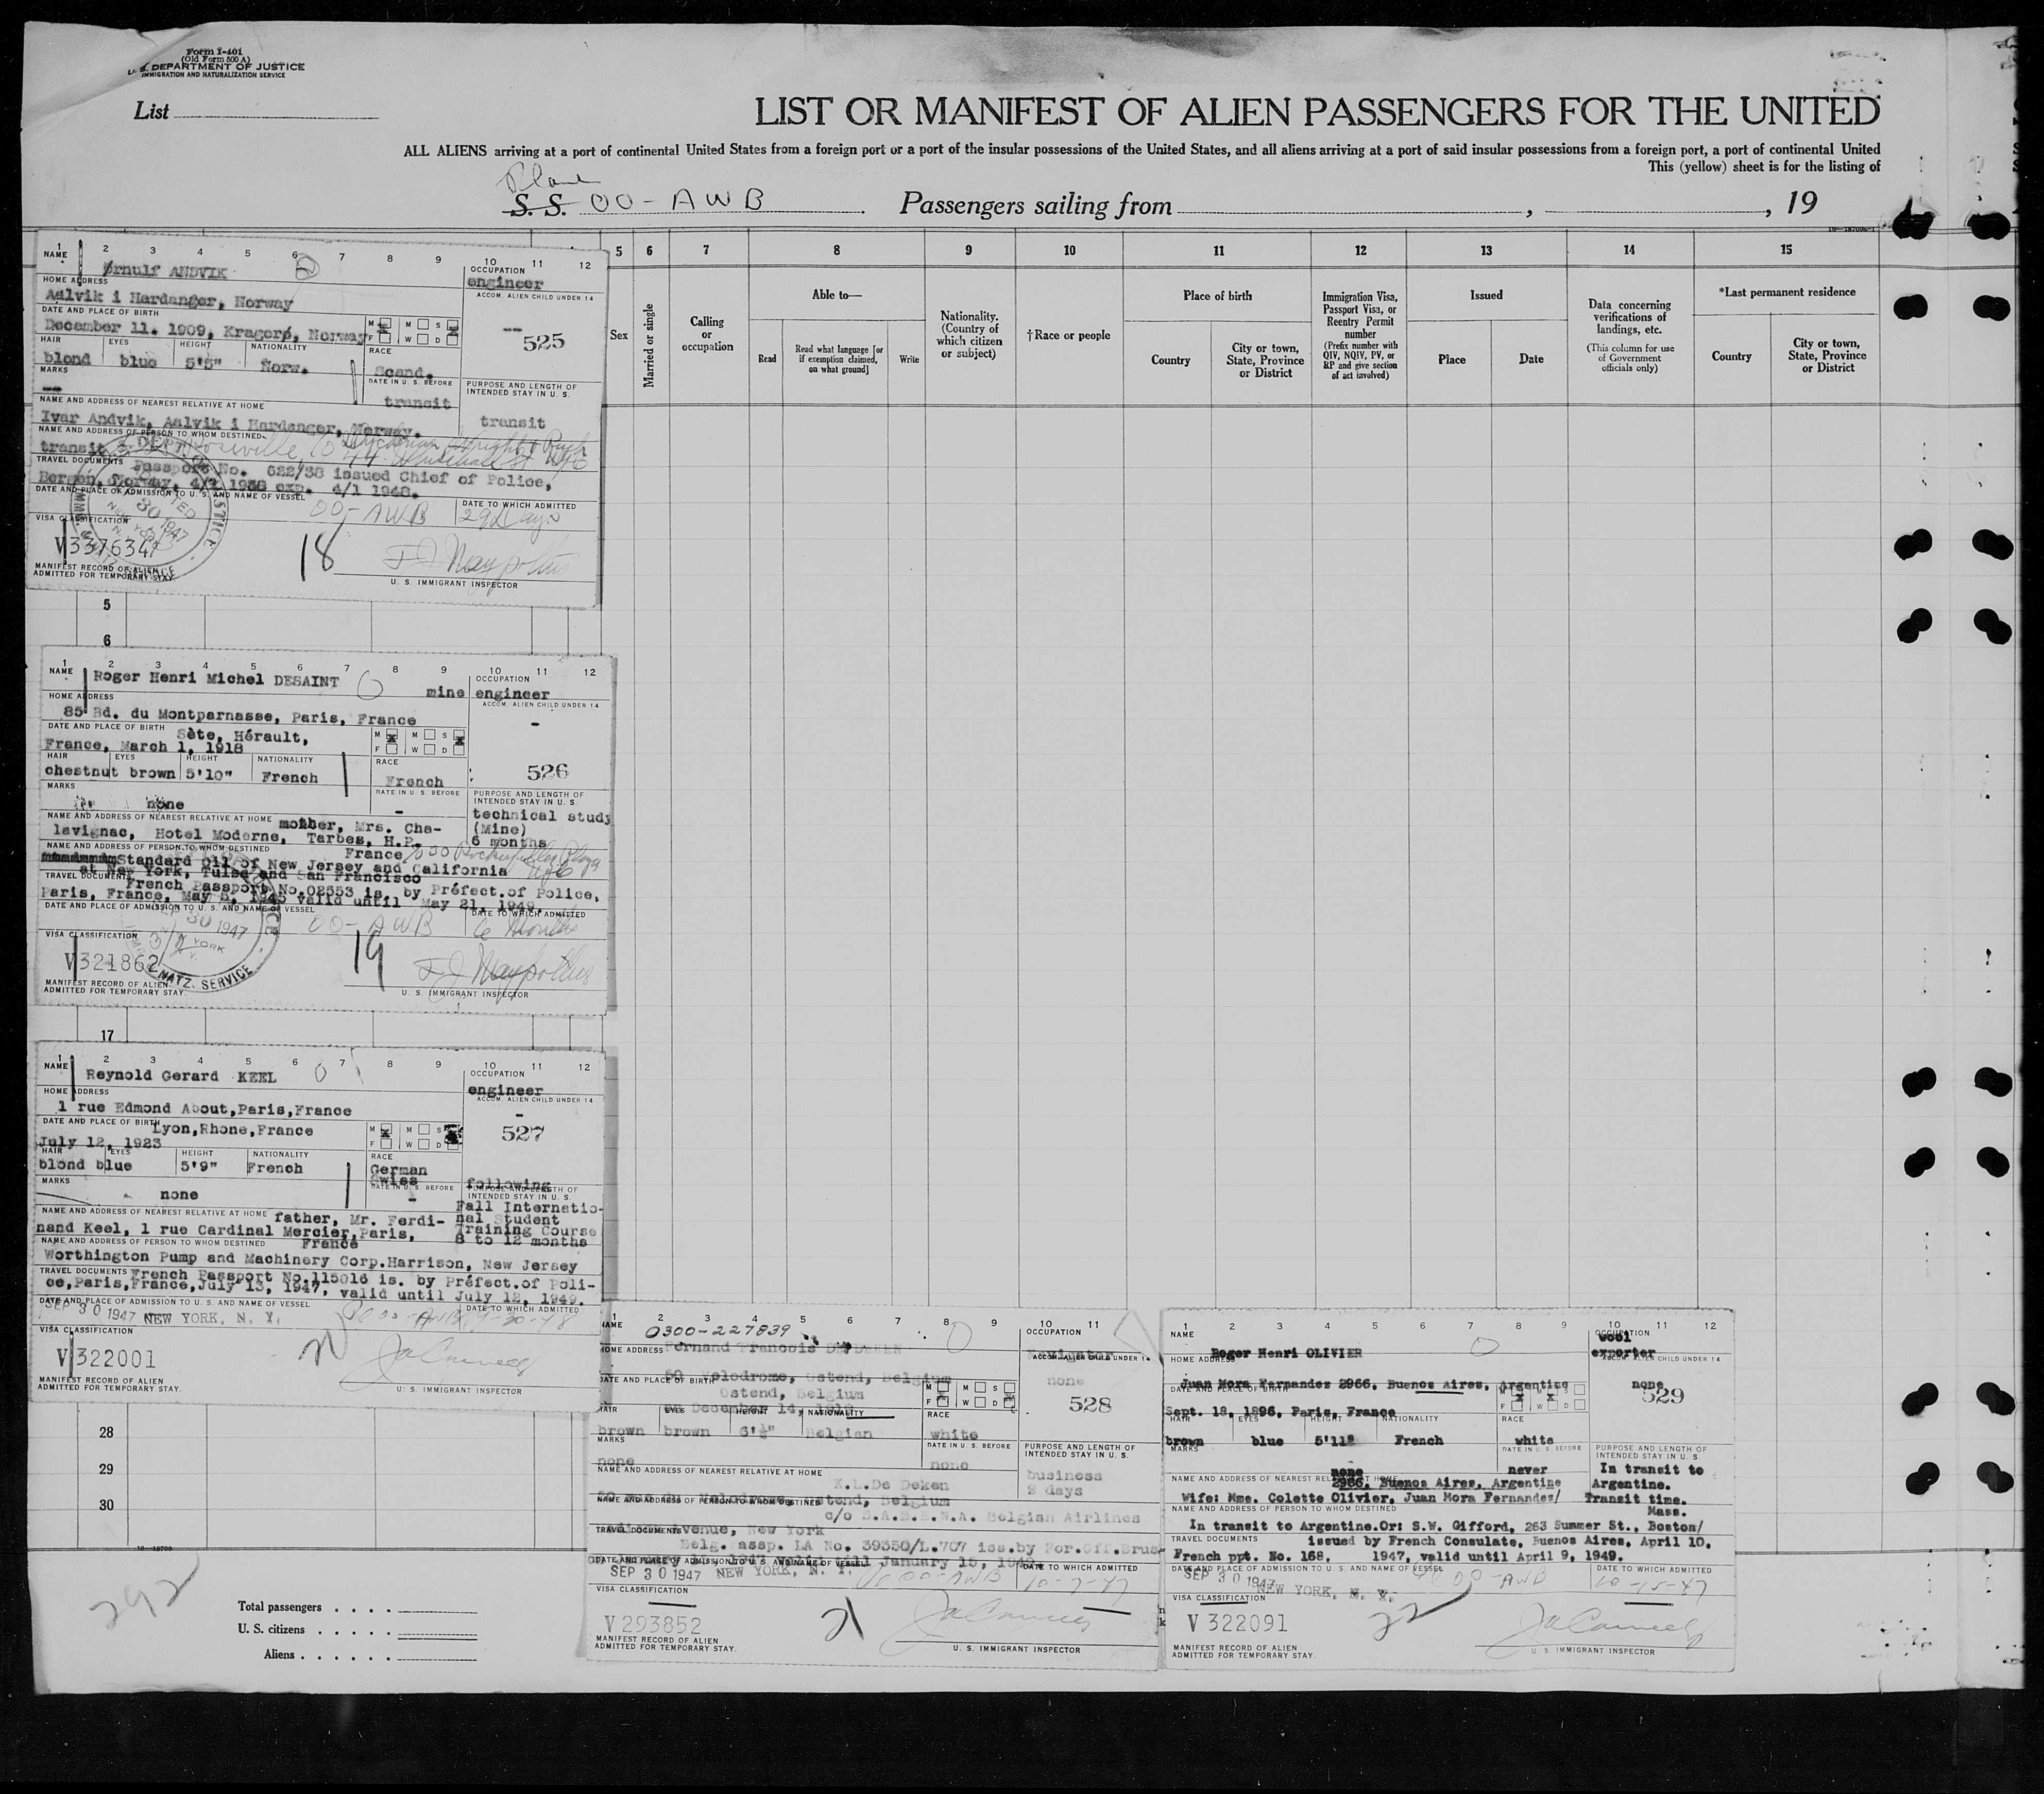 Form I-401
(Old Form 500 A)
U. S. DEPARTMENT OF JUSTICE
IMMIGRATION AND NATURALIZATION SERVICE
List
LIST OR MANIFEST OF ALIEN PASSENGERS FOR THE UNITED
ALL ALIENS arriving at a port of continental United States from a foreign port or a port of the insular possessions of the United States, and all aliens arriving at a port of said insular possessions from a foreign port, a port of continental United
This (yellow) sheet is for the listing of
Plane
S. S. OO-AWB Passengers sailing from , , 19
5 6 7 8 9 10 11 12 13 14 15
Sex
Married or single
Calling or occupation
Able to—
Read
Read what language [or if exemption claimed, on what ground]
Write
Nationality. (Country of which citizen or subject)
†Race or people
Place of birth
Country
City or town, State, Province or District
Immigration Visa, Passport Visa, or Reentry Permit number
(Prefix number with QIV, NQIV, PV, or RP and give section of act involved)
Issued
Place
Date
Data concerning verifications of landings, etc.
(This column for use of Government officials only)
*Last permanent residence
Country
City or town, State, Province or District
1 2 3 4 5 6 7 8 9 10 11 12
NAME
Ørnulf ANDVIK
OCCUPATION
engineer
HOME ADDRESS
Aalvik i Hardanger, Norway
ACCOM. ALIEN CHILD UNDER 14
--
DATE AND PLACE OF BIRTH
December 11. 1909, Kragerø, Norway
M M S
F W D
525
HAIR EYES HEIGHT NATIONALITY RACE
blond blue 5'5" Norw. Scand.
MARKS
--
DATE IN U. S. BEFORE
transit
PURPOSE AND LENGTH OF INTENDED STAY IN U. S.
transit
NAME AND ADDRESS OF NEAREST RELATIVE AT HOME
Ivar Andvik, Aalvik i Hardanger, Norway.
NAME AND ADDRESS OF PERSON TO WHOM DESTINED
transit
TRAVEL DOCUMENTS
Passport No. 622/38 issued Chief of Police,
Bergen, Norway, 4/1 1938 exp. 4/1 1948.
DATE AND PLACE OF ADMISSION TO U. S. AND NAME OF VESSEL
OO-AWB
DATE TO WHICH ADMITTED
29 Days
VISA CLASSIFICATION
V 3376347
18
MANIFEST RECORD OF ALIEN
ADMITTED FOR TEMPORARY STAY.
U. S. IMMIGRANT INSPECTOR
5
6
1 2 3 4 5 6 7 8 9 10 11 12
NAME
Roger Henri Michel DESAINT
OCCUPATION
mine engineer
HOME ADDRESS
85 Bd. du Montparnasse, Paris, France
ACCOM. ALIEN CHILD UNDER 14
-
DATE AND PLACE OF BIRTH
Sète, Hérault,
France, March 1, 1918
M M S
F W D
526
HAIR EYES HEIGHT NATIONALITY RACE
chestnut brown 5'10" French French
MARKS
none
DATE IN U. S. BEFORE
-
PURPOSE AND LENGTH OF INTENDED STAY IN U. S.
technical study
(Mine)
6 months
NAME AND ADDRESS OF NEAREST RELATIVE AT HOME
mother, Mrs. Cha-
lavignac, Hotel Moderne, Tarbes, H.P.
France
NAME AND ADDRESS OF PERSON TO WHOM DESTINED
Standard Oil of New Jersey and California
at New York, Tulsa and San Francisco
TRAVEL DOCUMENTS
French Passport No.02553 is. by Préfect.of Police,
Paris, France, May 5, 1945 valid until May 21, 1949.
DATE AND PLACE OF ADMISSION TO U. S. AND NAME OF VESSEL
SEP 30 1947
OO-AWB
DATE TO WHICH ADMITTED
6 Months
VISA CLASSIFICATION
V 321862
19
MANIFEST RECORD OF ALIEN
ADMITTED FOR TEMPORARY STAY.
U. S. IMMIGRANT INSPECTOR
17
1 2 3 4 5 6 7 8 9 10 11 12
NAME
Reynold Gerard KEEL
OCCUPATION
engineer
HOME ADDRESS
1 rue Edmond About,Paris,France
ACCOM. ALIEN CHILD UNDER 14
-
DATE AND PLACE OF BIRTH
Lyon,Rhone,France
July 12, 1923
M M S
F W D
527
HAIR EYES HEIGHT NATIONALITY RACE
blond blue 5'9" French German
Swiss
MARKS
none
DATE IN U. S. BEFORE
-
PURPOSE AND LENGTH OF INTENDED STAY IN U. S.
following
Fall Internatio-
nal Student
Training Course
8 to 12 months
NAME AND ADDRESS OF NEAREST RELATIVE AT HOME
father, Mr. Ferdi-
nand Keel, 1 rue Cardinal Mercier,Paris,
France
NAME AND ADDRESS OF PERSON TO WHOM DESTINED
Worthington Pump and Machinery Corp.Harrison, New Jersey
TRAVEL DOCUMENTS
French Passport No.115016 is. by Préfect.of Poli-
ce,Paris,France,July 13, 1947, valid until July 12, 1949.
DATE AND PLACE OF ADMISSION TO U. S. AND NAME OF VESSEL
SEP 30 1947 NEW YORK, N. Y.
OO-AWB
DATE TO WHICH ADMITTED
9-30-48
VISA CLASSIFICATION
V 322001
20
MANIFEST RECORD OF ALIEN
ADMITTED FOR TEMPORARY STAY.
U. S. IMMIGRANT INSPECTOR
28
29
30
1 2 3 4 5 6 7 8 9 10 11
NAME
0300-227839
Fernand Francois
OCCUPATION
Navigator
HOME ADDRESS
Velodrome, Ostend, Belgium
ACCOM. ALIEN CHILD UNDER 14
none
DATE AND PLACE OF BIRTH
Ostend, Belgium
December 14,
M M S
F W D
528
HAIR EYES HEIGHT NATIONALITY RACE
brown brown 6'½" Belgian white
MARKS
none
DATE IN U. S. BEFORE
none
PURPOSE AND LENGTH OF INTENDED STAY IN U. S.
business
2 days
NAME AND ADDRESS OF NEAREST RELATIVE AT HOME
K.L.De Deken
Ostend, Belgium
NAME AND ADDRESS OF PERSON TO WHOM DESTINED
c/o S.A.B.E.N.A. Belgian Airlines
Avenue, New York
TRAVEL DOCUMENTS
Belg. Passp. LA No. 39350/L.707 iss.by For.Off.Brus-
till January 15,
DATE AND PLACE OF ADMISSION TO U. S. AND NAME OF VESSEL
SEP 30 1947 NEW YORK, N. Y.
OO-AWB
DATE TO WHICH ADMITTED
10-7-47
VISA CLASSIFICATION
V 293852
21
MANIFEST RECORD OF ALIEN
ADMITTED FOR TEMPORARY STAY.
U. S. IMMIGRANT INSPECTOR
1 2 3 4 5 6 7 8 9 10 11 12
NAME
Roger Henri OLIVIER
OCCUPATION
wool
exporter
HOME ADDRESS
Juan Mora Fernandez 2966, Buenos Aires, Argentine
ACCOM. ALIEN CHILD UNDER 14
none
DATE AND PLACE OF BIRTH
Sept. 18, 1896, Paris, France
M M S
F W D
529
HAIR EYES HEIGHT NATIONALITY RACE
brown blue 5'11" French white
MARKS
none
DATE IN U. S. BEFORE
never
PURPOSE AND LENGTH OF INTENDED STAY IN U. S.
In transit to
Argentine.
Transit time.
NAME AND ADDRESS OF NEAREST RELATIVE AT HOME
2966, Buenos Aires, Argentine
Wife: Mme. Colette Olivier, Juan Mora Fernandez/
NAME AND ADDRESS OF PERSON TO WHOM DESTINED
Mass.
In transit to Argentine.Or: S.W. Gifford, 263 Summer St., Boston/
TRAVEL DOCUMENTS
issued by French Consulate, Buenos Aires, April 10,
French ppt. No. 168, 1947, valid until April 9, 1949.
DATE AND PLACE OF ADMISSION TO U. S. AND NAME OF VESSEL
SEP 30 1947 NEW YORK, N. Y.
OO-AWB
DATE TO WHICH ADMITTED
10-15-47
VISA CLASSIFICATION
V 322091
22
MANIFEST RECORD OF ALIEN
ADMITTED FOR TEMPORARY STAY.
U. S. IMMIGRANT INSPECTOR
292
Total passengers
U. S. citizens
Aliens